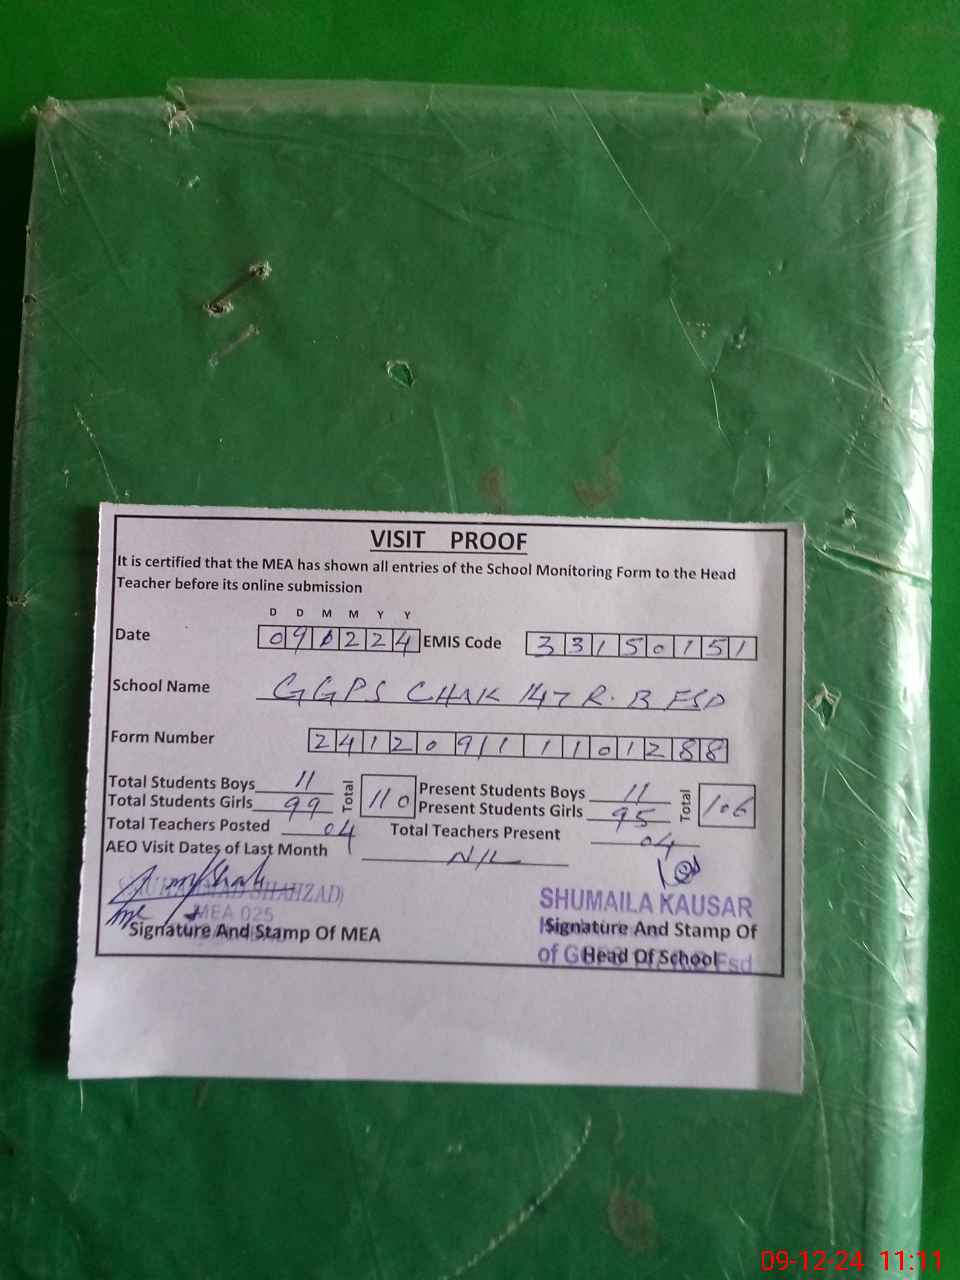 VISIT PROOF
It is certified that the MEA has shown all entries of the School Monitoring Form to the Head
Teacher before its online submission
D D M M Y Y
Date 091224 EMIS Code 33150151
School Name GGPS CHAK 147 R.B FSD
Form Number 241209111101288
Total Students Boys 11 Total 110 Present Students Boys 11 Total 106
Total Students Girls 99 Present Students Girls 95
Total Teachers Posted 04 Total Teachers Present 04
AEO Visit Dates of Last Month NIL
SHAHZAD)
MEA 025
SHUMAILA KAUSAR
Signature And Stamp Of MEA Signature And Stamp Of
Head Of School
of Fsd
09-12-24 11:11